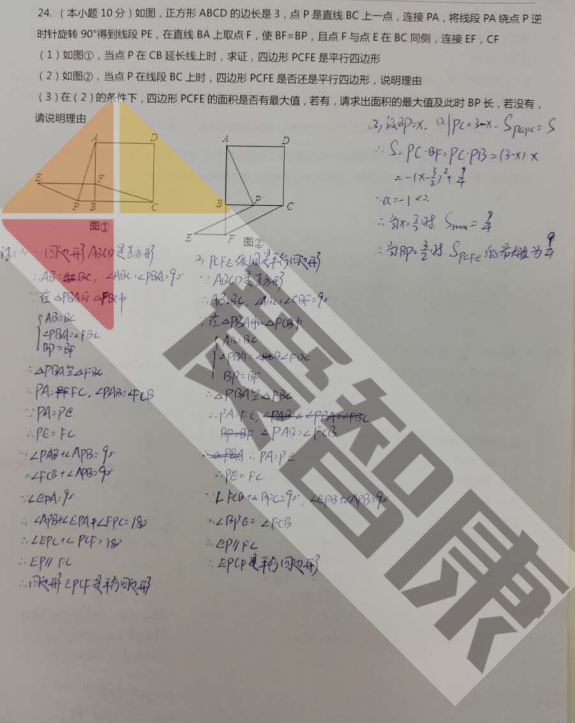 24.（本小题10分）如图，正方形ABCD的边长是3，点P是直线BC上一点，连接PA，将线段PA绕点P逆
时针旋转90°得到线段PE，在直线BA上取点F，使BF=BP，且点F与点E在BC同侧，连接EF，CF
（1）如图①，当点P在CB延长线上时，求证，四边形PCFE是平行四边形
（2）如图②，当点P在线段BC上时，四边形PCFE是否还是平行四边形，说明理由
（3）在（2）的条件下，四边形PCFE的面积是否有最大值，若有，请求出面积的最大值及此时BP长，若没有，
请说明理由
A D
E F
P B C
图①
A D
B P C
E F
图②
∵四边形ABCD是正方形
∴AB=BC，∠ABC=∠PBA=90°
∴在△PBA和△FBC中
AB=BC
∠PBA=∠FBC
BP=BF
∴△PBA≌△FBC
∴PA=FC，∠PAB=∠FCB
∵PA=PE
∴PE=FC
∵∠PAB+∠APB=90°
∴∠FCB+∠APB=90°
∵∠EPA=90°
∴∠APB+∠EPA+∠FPC=180°
∴∠EPC+∠PCF=180°
∴EP∥FC
∴四边形EPCF是平行四边形
2) PCFE依旧是平行四边形
∵ABCD是正方形
∴AB=BC，∠ABC=∠CBF=90°
AB=BC
BP=BF
∴△PBA≌△FBC
∴PA=FC，
∠PAB=∠FCB
∴PA=PE
∴PE=FC
∴∠BPE=∠FCB
∴EP∥FC
∴EPCF是平行四边形
3) 设BP=x，则PC=3-x
∴S=PC·BF=PC·PB=(3-x)·x
=-(x-3/2)²+9/4
∵a=-1<0
∴当x=3/2时 Smax=9/4
∴当BP=3/2时 S PCFE的最大值为9/4
爱智康